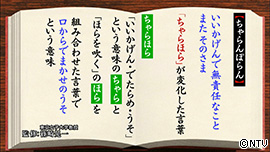 【ちゃらんぽらん】
いいかげんで無責任なこと
またそのさま
「ちゃらほら」が変化した言葉
ちゃらほら
「いいかげん・でたらめ・うそ」
という意味のちゃらと
「ほらを吹く」のほらを
組み合わせた言葉で
口からでまかせのうそ
という意味
©NTV